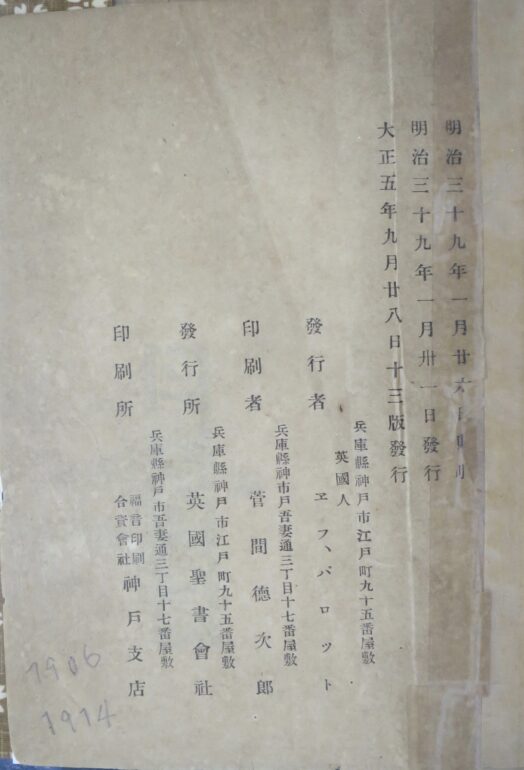 明治三十九年一月廿六日印刷
明治三十九年一月卅一日發行
大正五年九月廿八日十三版發行
兵庫縣神戸市江戸町九十五番屋敷
英國人
發行者 ヱフ、パロット
兵庫縣神市戸吾妻通三丁目十七番屋敷
印刷者 菅間德次郎
兵庫縣神戸市江戸町九十五番屋敷
發行所 英國聖書會社
兵庫縣神戸市吾妻通三丁目十七番屋敷
印刷所 福音印刷合資會社 神戸支店
1906
1914